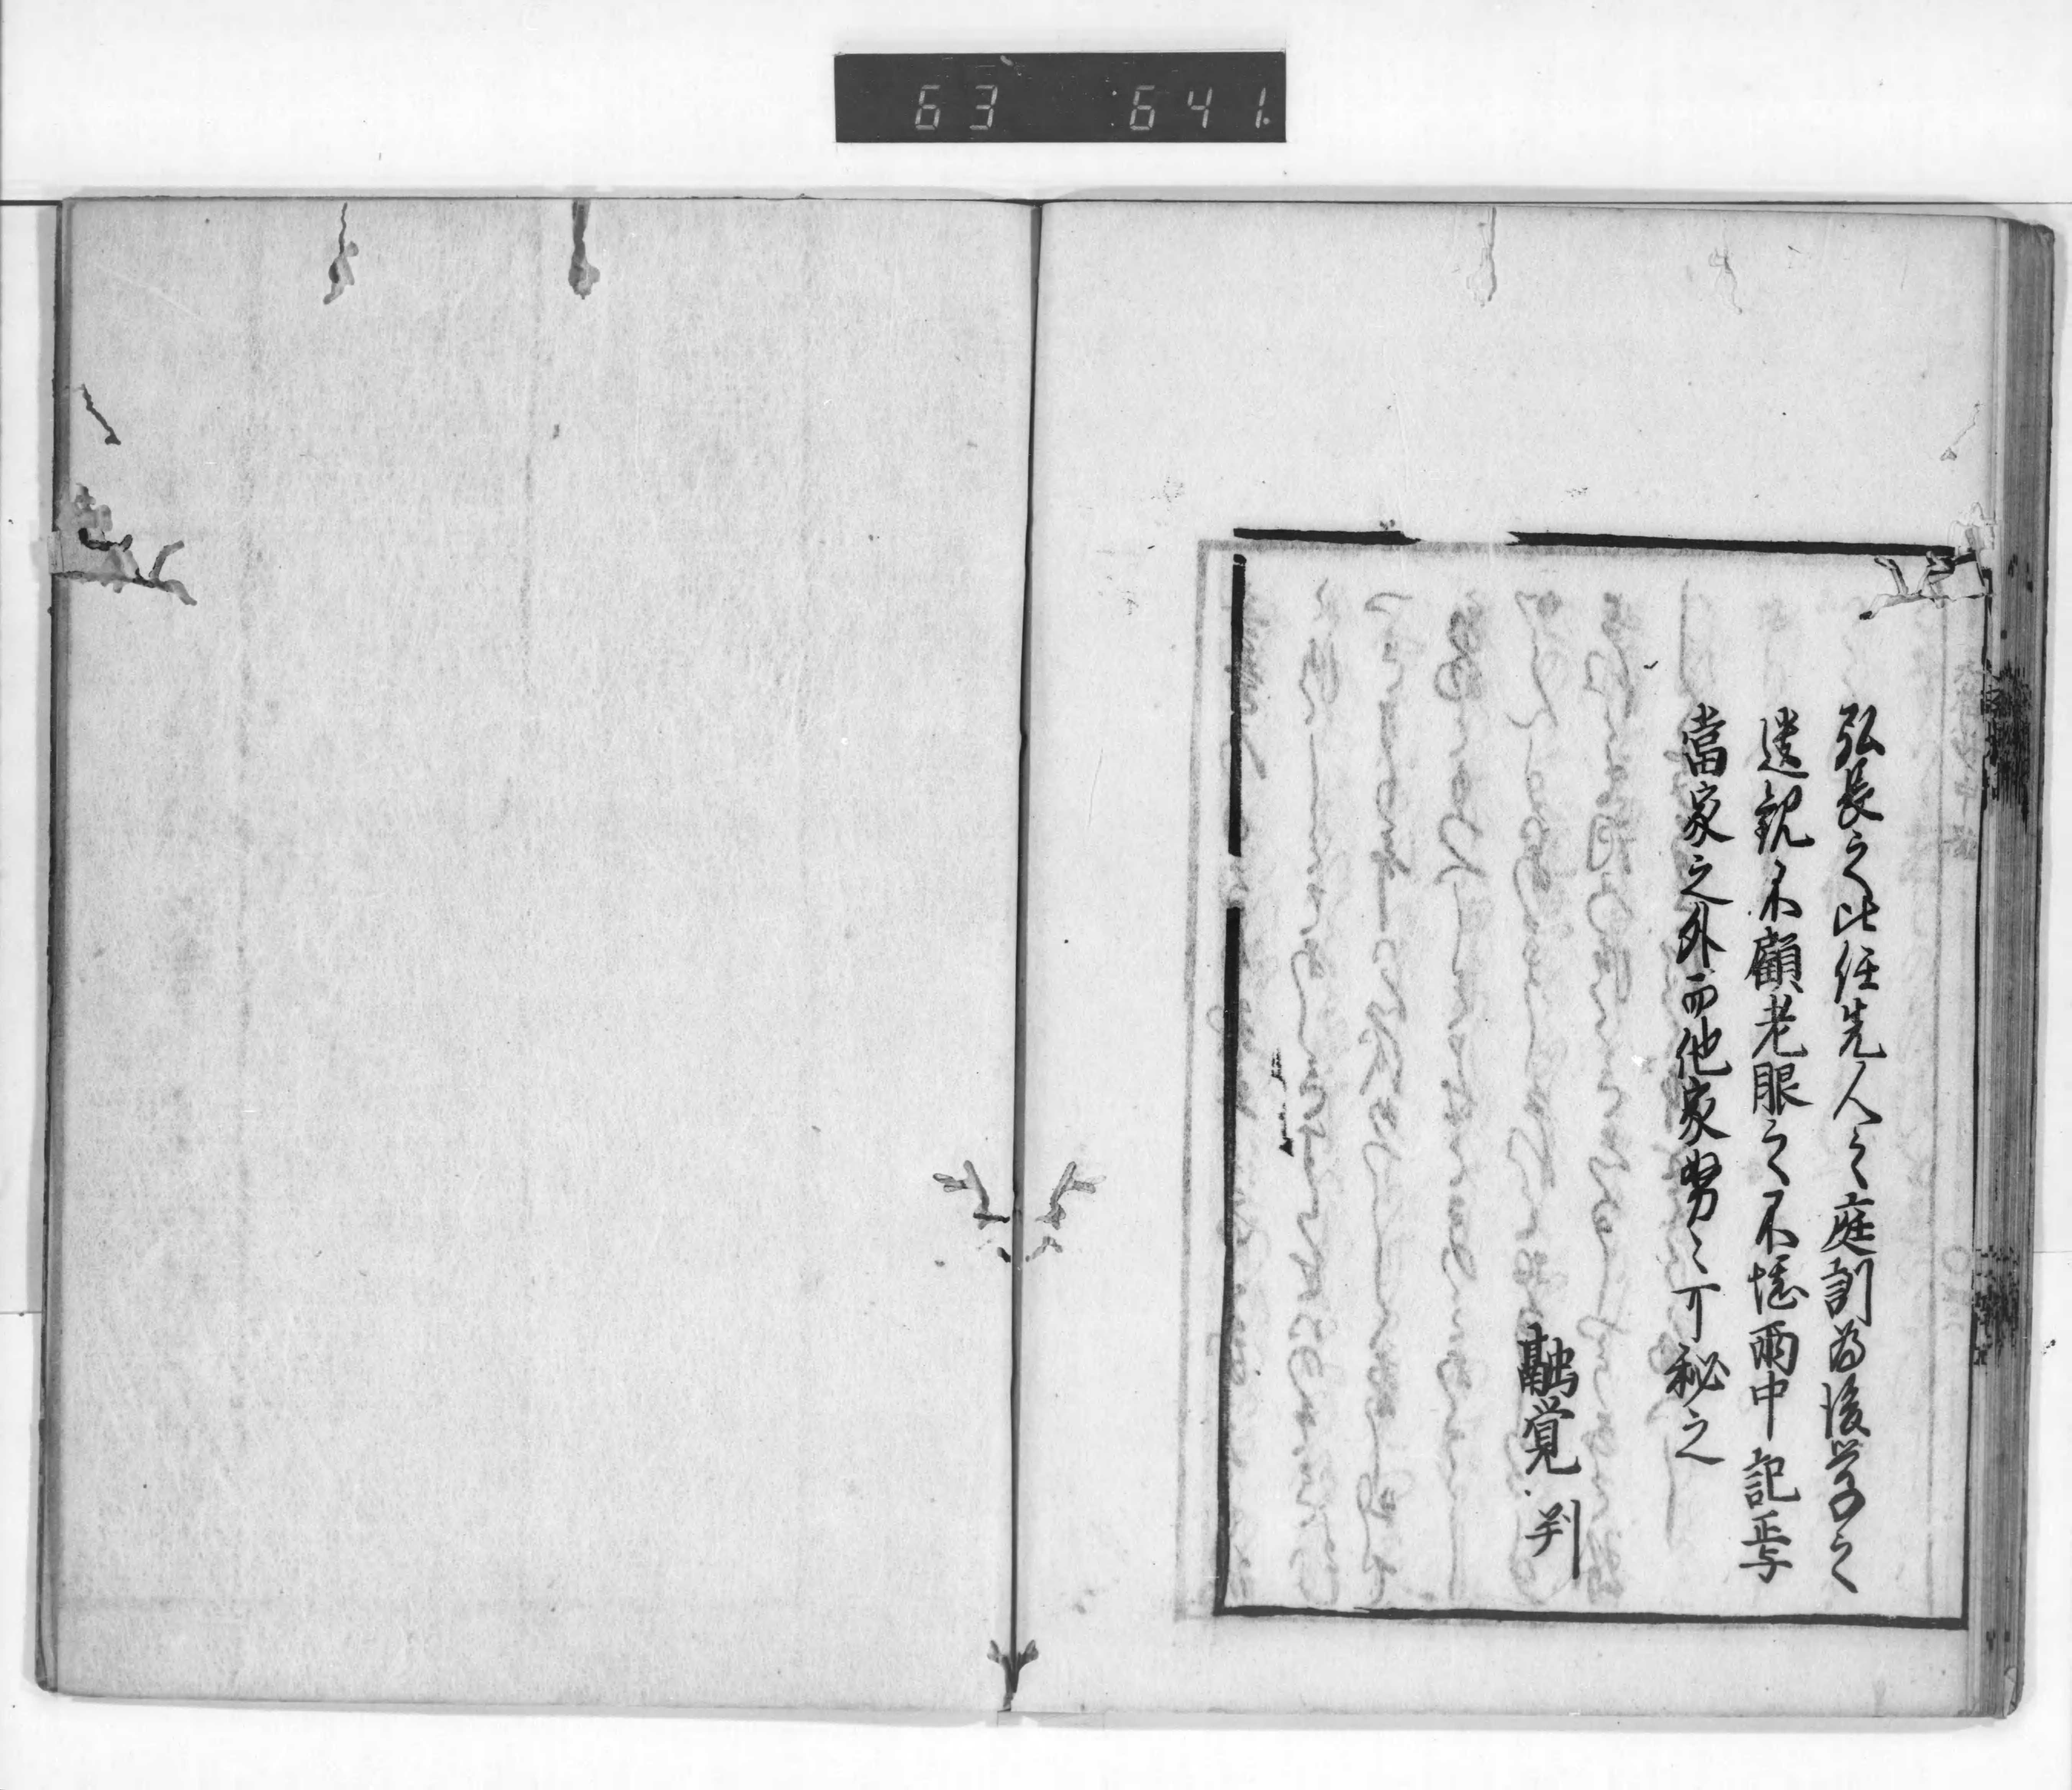 63 641.
弘長之比任先人之庭訓為後学之
遺親不顧老眼之不慥雨中記焉
當家之外而他家努〻可秘之
融覚 判